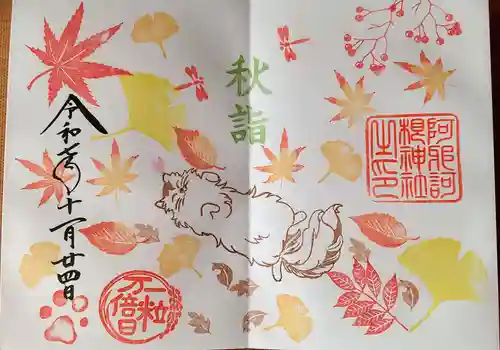 秋詣
阿邪訶
根神社
之印
令和七年十一月廿四日
一粒
万倍日